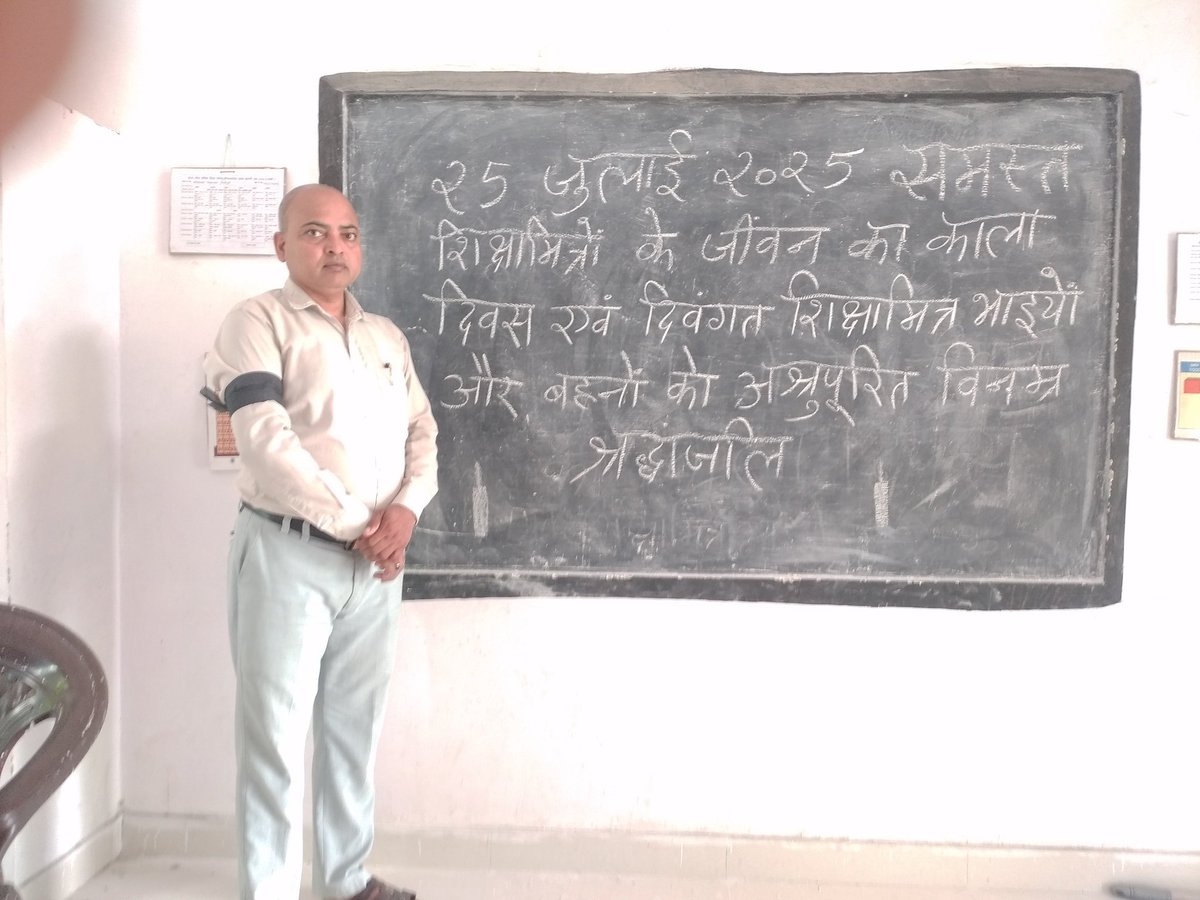 २5 जुलाई २०२5 समस्त
शिक्षामित्रों के जीवन का काला
दिवस एवं दिवंगत शिक्षामित्र भाइयों
और बहनों को अश्रुपूरित विनम्र
श्रद्धांजलि